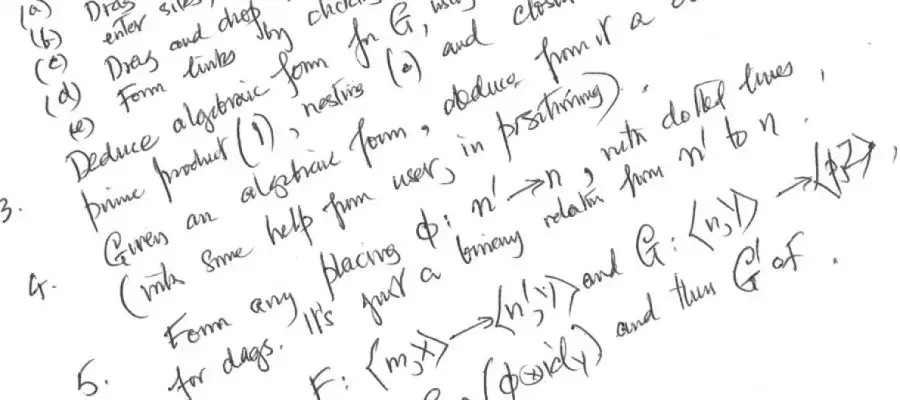 (a) Drag
(b) enter sites,
(c) Drag and drop
(d) Form links by clicking
(e) Deduce algebraic form for G, using
prime product (|), nesting (.) and closure
3. Given an algebraic form, deduce from it a
(with some help from user, in positioning).
4. Form any placing ϕ: n' → n, with dotted lines,
for dags. It's just a binary relation from n' to n.
5. F: ⟨m,X⟩ → ⟨n',Y⟩ and G: ⟨n,Y⟩ → ⟨p,Z⟩,
(ϕ⊗id_Y) and then G' ∘ F.